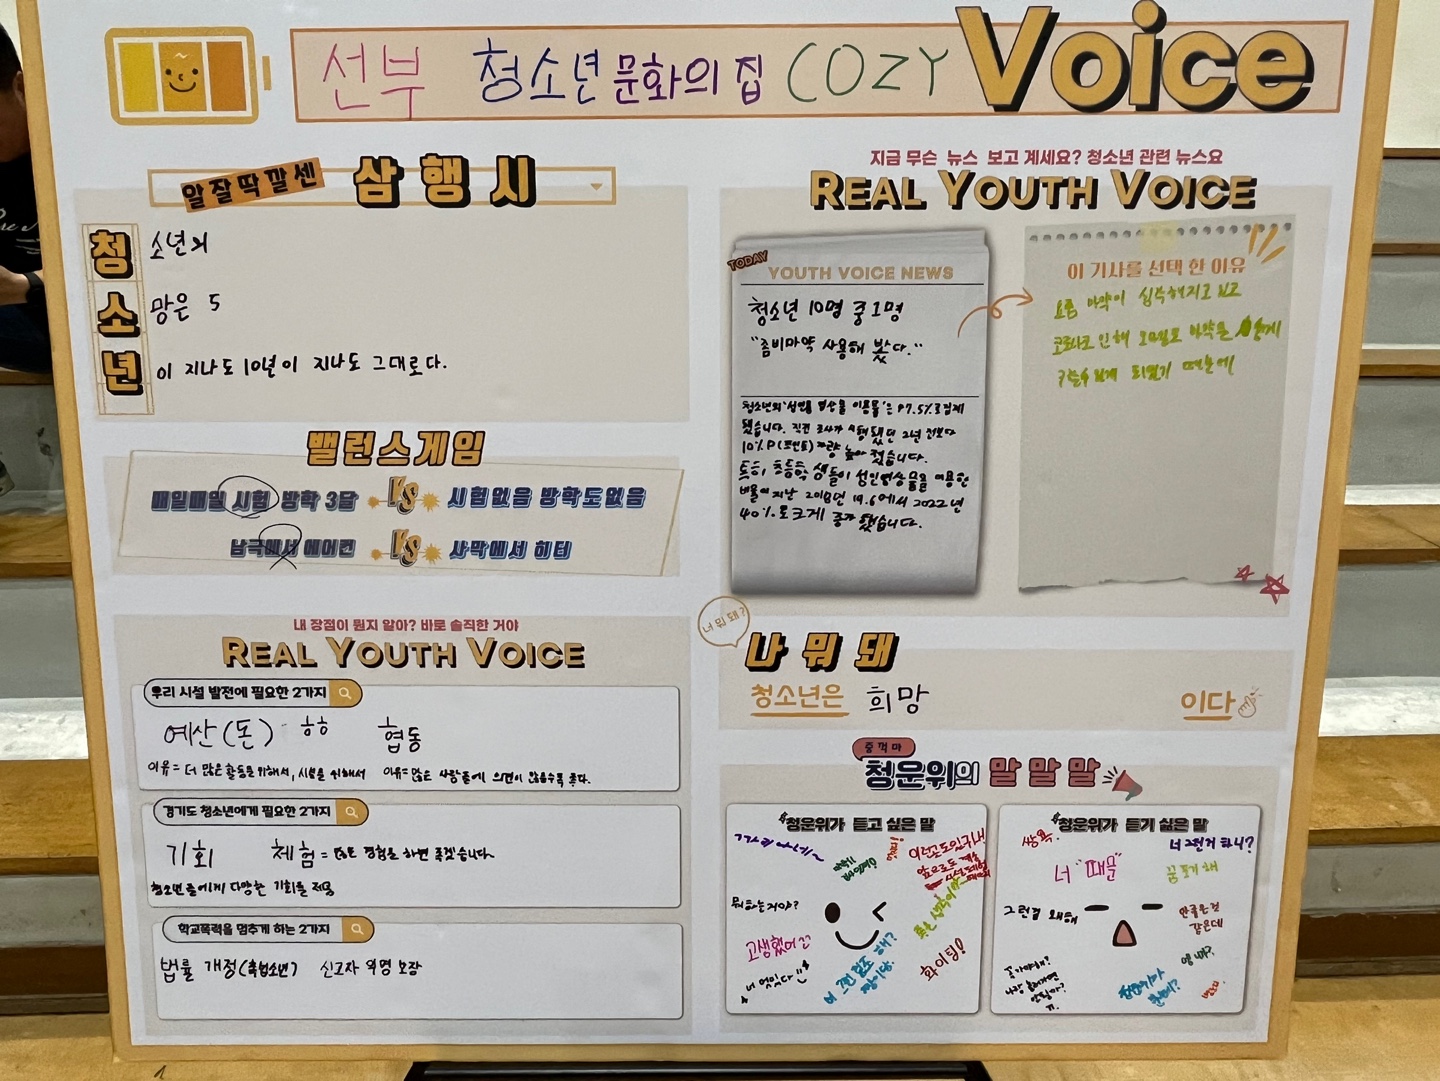 선부 청소년문화의집 COZY Voice
알잘딱깔센 삼행시
청 소년의
소 망은 5
년 이 지나도 10년이 지나도 그대로다.
밸런스게임
매일매일 시험 방학 3달 VS 시험없음 방학도없음
남극에서 에어컨 VS 사막에서 히터
내 장점이 뭔지 알아? 바로 솔직한 거야
REAL YOUTH VOICE
우리 시설 발전에 필요한 2가지
예산(돈) ㅎㅎ 협동
이유= 더 많은 활동을 위해서, 시설을 위해서 이유= 많은 사람들에 의견이 많을수록 좋다.
경기도 청소년에게 필요한 2가지
기회 체험= 많은 경험을 하면 좋겠습니다
청소년들에게 다양한 기회를 제공
학교폭력을 멈추게 하는 2가지
법률 개정(촉법소년) 신고자 익명 보장
지금 무슨 뉴스 보고 계세요? 청소년 관련 뉴스요
REAL YOUTH VOICE
TODAY
YOUTH VOICE NEWS
청소년 10명 중 1명
"좀비마약 사용해 봤다."
청소년의 '성인용 영상물 이용률'은 47.5%로 집계
됐습니다. 직전 조사가 시행됐던 2년 전보다
10%P(포인트) 가량 높아 졌습니다.
특히, 초등학생들이 성인영상물을 이용한
비율이 지난 2018년 19.6에서 2022년
40%로 크게 증가 했습니다.
이 기사를 선택 한 이유
요즘 마약이 심각해지고 있고
코로나로 인해 마약을 쉽게
구할수 있게 되었기 때문에
너 뭐 돼?
나 뭐 돼
청소년은 희망 이다
중꺽마
청운위의 말말말
청운위가 듣고 싶은 말
뭐하는거야?
고생했어요
너 멋있다
화이팅!
청운위가 듣기 싫은 말
쌍욕
너 그런거 하니?
너 "때문"
꿈 포기 해
그런걸 왜해
안좋은것
같은데